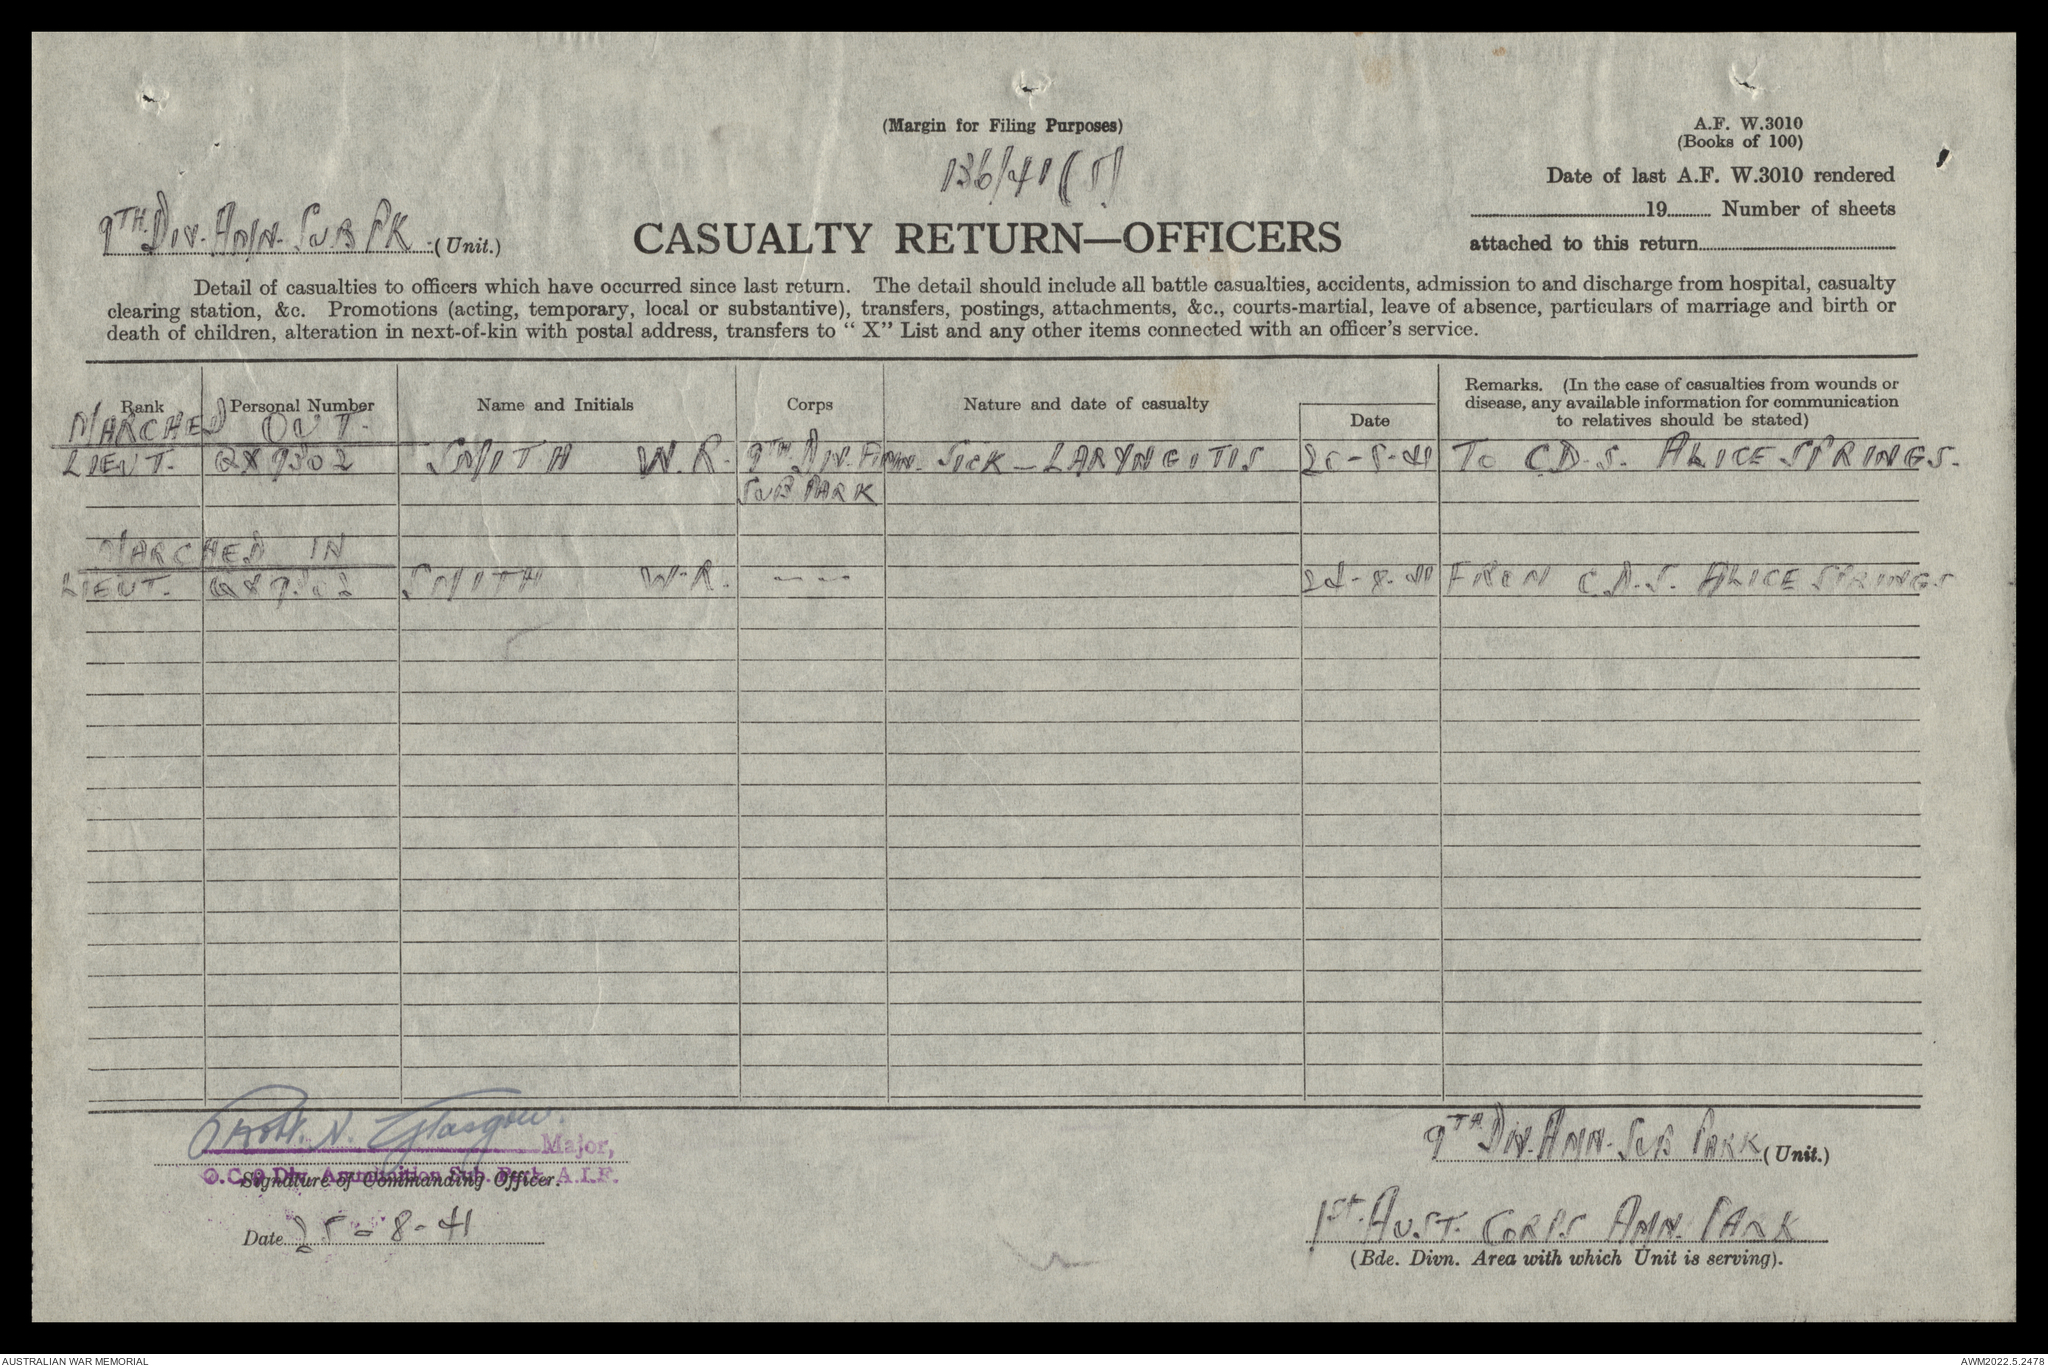 (Margin for Filing Purposes)
136/41 (5)
A.F. W.3010
(Books of 100)
Date of last A.F. W.3010 rendered
19 Number of sheets
attached to this return
9TH. DIV. AMN. SUB PK (Unit.)
CASUALTY RETURN—OFFICERS
Detail of casualties to officers which have occurred since last return. The detail should include all battle casualties, accidents, admission to and discharge from hospital, casualty
clearing station, &c. Promotions (acting, temporary, local or substantive), transfers, postings, attachments, &c., courts-martial, leave of absence, particulars of marriage and birth or
death of children, alteration in next-of-kin with postal address, transfers to “ X” List and any other items connected with an officer's service.
Rank Personal Number Name and Initials Corps Nature and date of casualty Date Remarks. (In the case of casualties from wounds or
disease, any available information for communication
to relatives should be stated)
MARCHED OUT.
LIEUT. QX9302 SMITH W.R. 9TH. DIV. AMN. SICK - LARYNGITIS To C.D.S. ALICE SPRINGS.
SUB PARK
MARCHED IN
LIEUT. QX9302 SMITH W.R. - - FROM C.D.S. ALICE SPRINGS
Robt. N. Glasgow. Major,
O.C. 9 Div. Ammunition Sub. Park A.I.F.
Signature of Commanding Officer.
Date 25-8-41
9TH DIV. AMN. SUB PARK (Unit.)
1ST. AUST. CORPS AMN. PARK
(Bde. Divn. Area with which Unit is serving).
AUSTRALIAN WAR MEMORIAL
AWM2022.5.2478